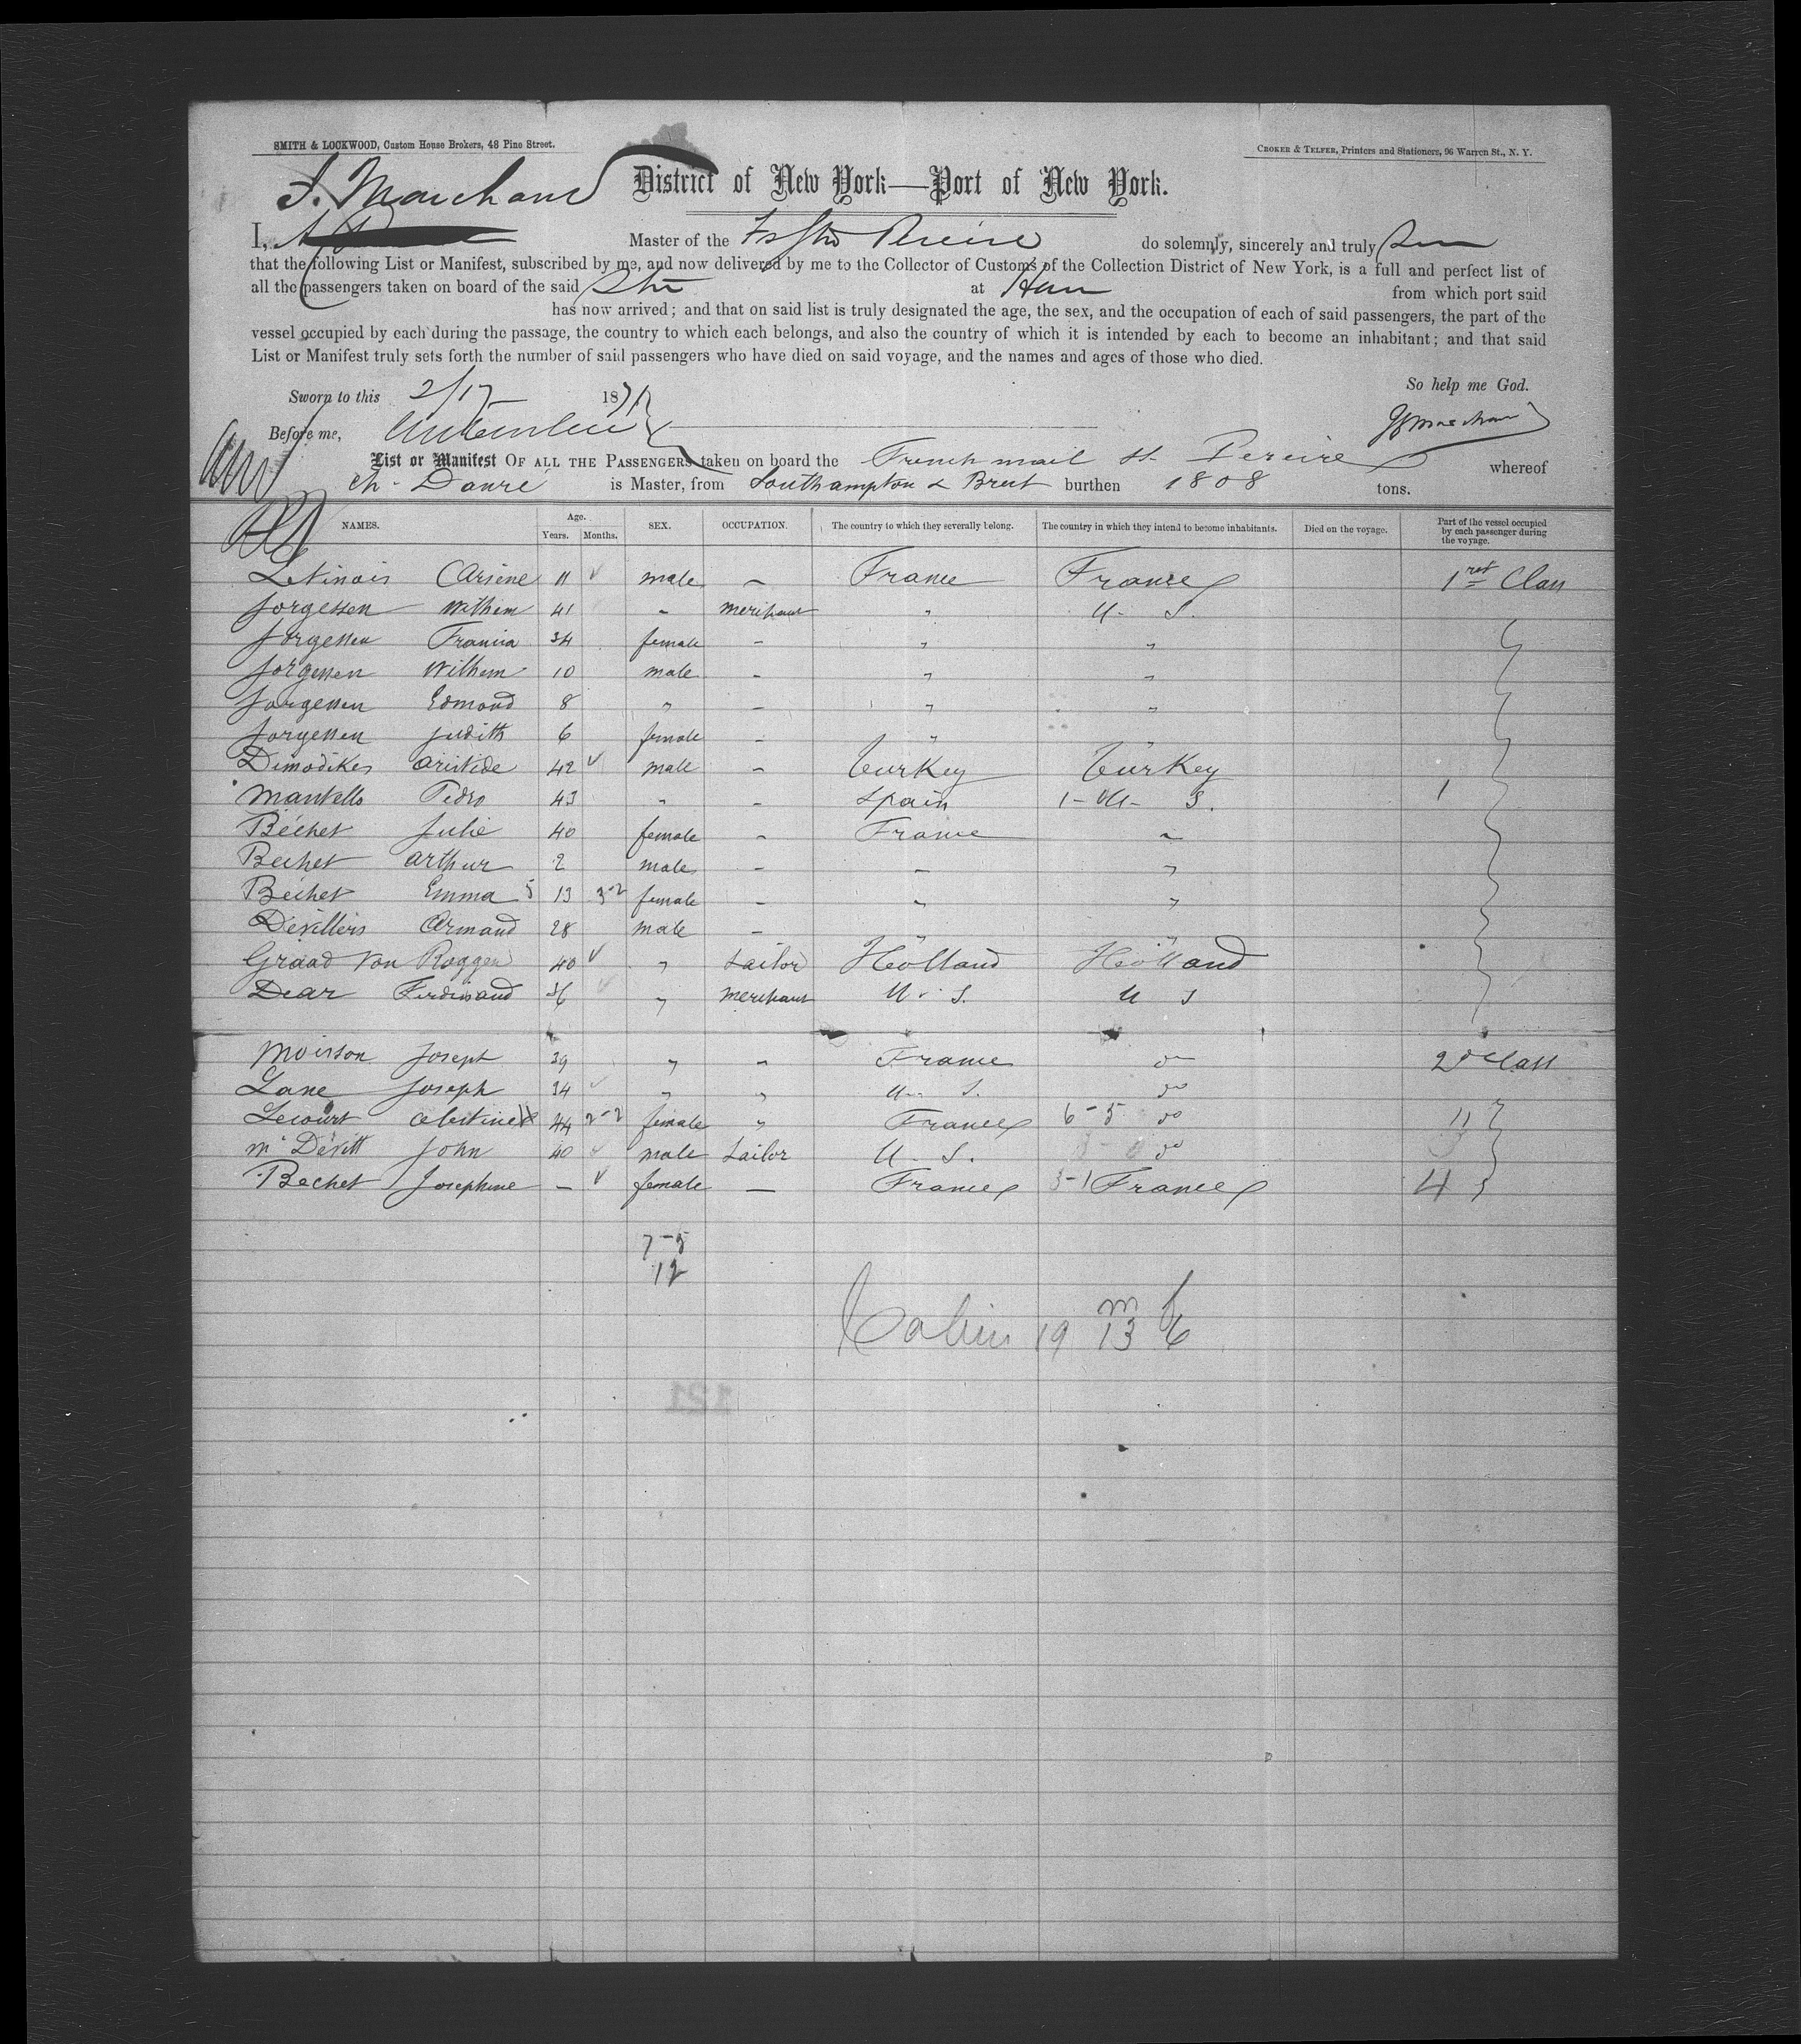 SMITH & LOCKWOOD, Custom House Brokers, 48 Pine Street.
CROKER & TELFER, Printers and Stationers, 96 Warren St., N. Y.
District of New York—Port of New York.
I, Master of the Pereire do solemnly, sincerely and truly
that the following List or Manifest, subscribed by me, and now delivered by me to the Collector of Customs of the Collection District of New York, is a full and perfect list of
all the passengers taken on board of the said Str at from which port said
has now arrived; and that on said list is truly designated the age, the sex, and the occupation of each of said passengers, the part of the
vessel occupied by each during the passage, the country to which each belongs, and also the country of which it is intended by each to become an inhabitant; and that said
List or Manifest truly sets forth the number of said passengers who have died on said voyage, and the names and ages of those who died.
So help me God.
Sworn to this 2/17 1871
Before me,
List or Manifest OF ALL THE PASSENGERS taken on board the French mail st. Pereire whereof
ch. Danré is Master, from Southampton & Brest burthen 1808 tons.
NAMES. Age. Years. Months. SEX. OCCUPATION. The country to which they severally belong. The country in which they intend to become inhabitants. Died on the voyage. Part of the vessel occupied by each passenger during the voyage.
Letinois Arsène 11 male – France France 1rst Class
Jorgessen Wilhem 41 " merchant " U. S.
Jorgessen Francia 34 female – " "
Jorgessen Wilhem 10 male – " "
Jorgessen Edmond 8 " – " "
Jorgessen Judith 6 female – " "
Dimodikes Aristide 42 male – Turkey Turkey
Mantello Pedro 43 " – Spain 1- U. S. 1
Béchet Julie 40 female – France "
Bechet Arthur 2 male – " "
Béchet Emma 5 13 3-2 female – " "
Devillers Armand 28 male – " "
Graad Von Roggen 40 " Sailor Holland Holland
Dear Ferdinand 36 " merchant U. S. U S
Moisson Joseph 39 " " France do 2d Class
Lane Joseph 34 " " U. S. do
Lecourt Celestine 44 2-2 female " France 6-5 do 11
Mc Devitt John 40 male Sailor U. S. do
Bechet Josephine – female – France 3-1 France 4
7-5
12
Cabin 19 m 13 f 6
121